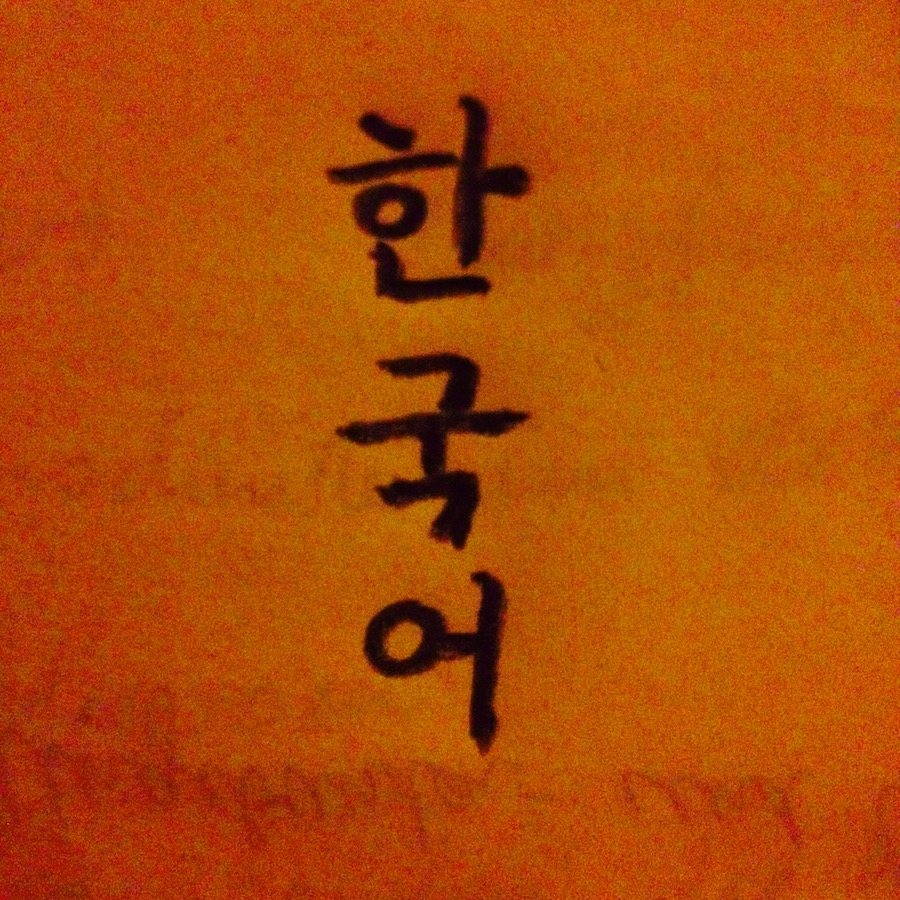 한국어